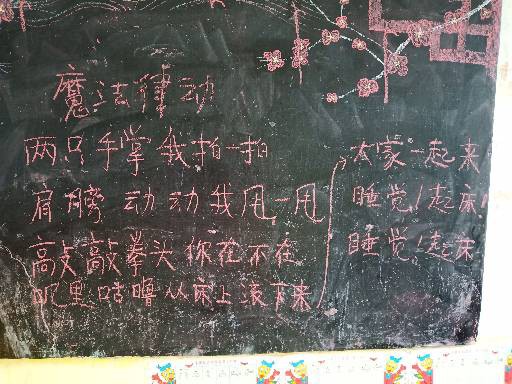 魔法律动
两只手掌我拍一拍
肩膀动动我甩一甩
敲敲拳头你在不在
叽里咕噜从床上滚下来
一起来
睡觉!起床!
睡觉!起床